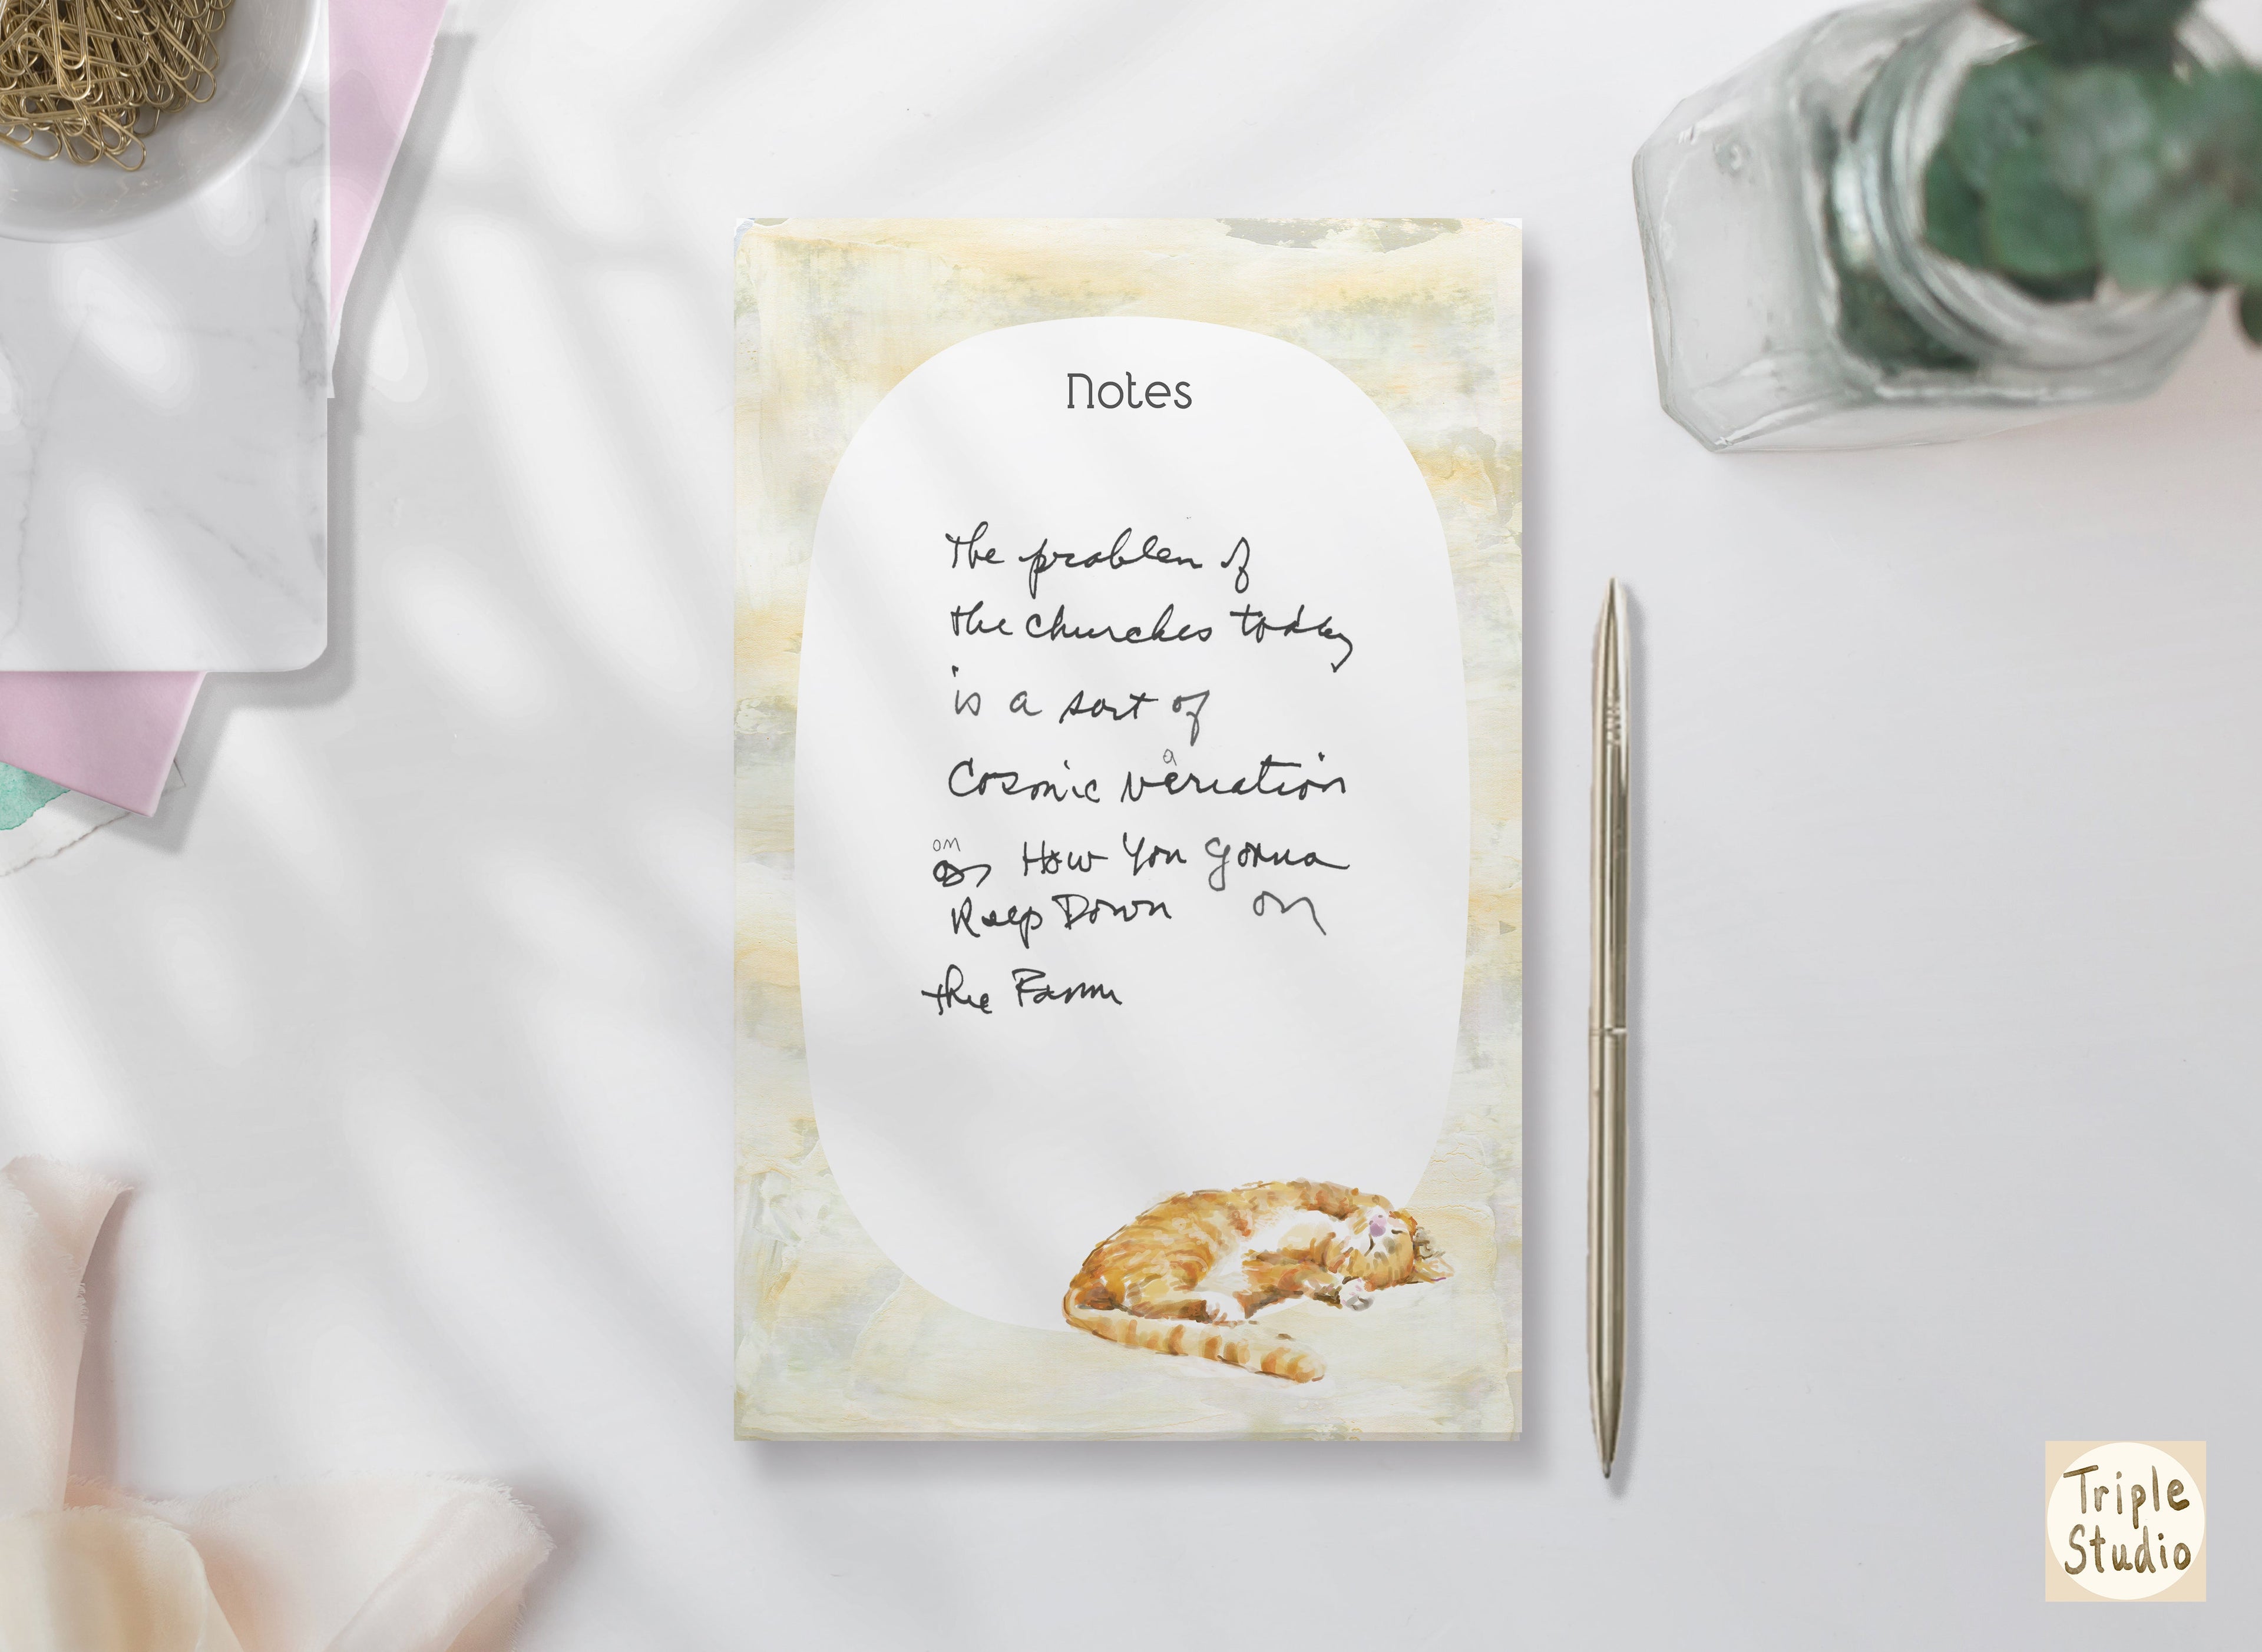 Notes
The problem of
the churches today
is a sort of
a
Cosmic veriation
on
How You Gonna
Keep Down on
the Farm
Triple
Studio